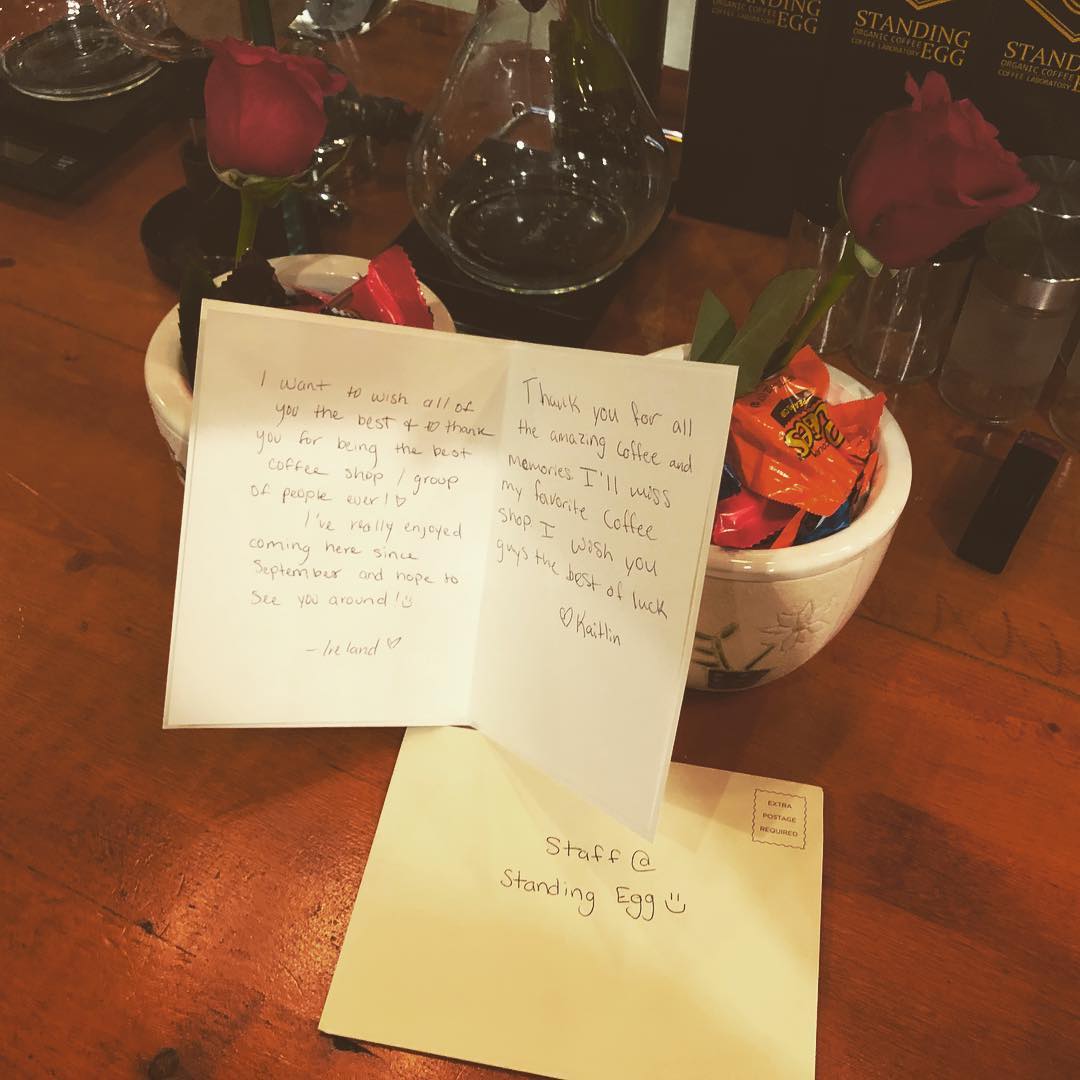 STANDING
EGG
ORGANIC COFFEE
COFFEE LABORATORY
STANDING
EGG
ORGANIC COFFEE
COFFEE LABORATORY
STAND
ORGANIC COFFEE
COFFEE LABORATORY
I want to wish all of
you the best & to thank
you for being the best
coffee shop / group
of people ever! ♡
I've really enjoyed
coming here since
September and hope to
see you around! ☺
- Ireland ♡
Thank you for all
the amazing coffee and
memories I'll miss
my favorite coffee
shop I wish you
guys the best of luck
♡ Kaitlin
EXTRA
POSTAGE
REQUIRED
Staff @
Standing Egg :)